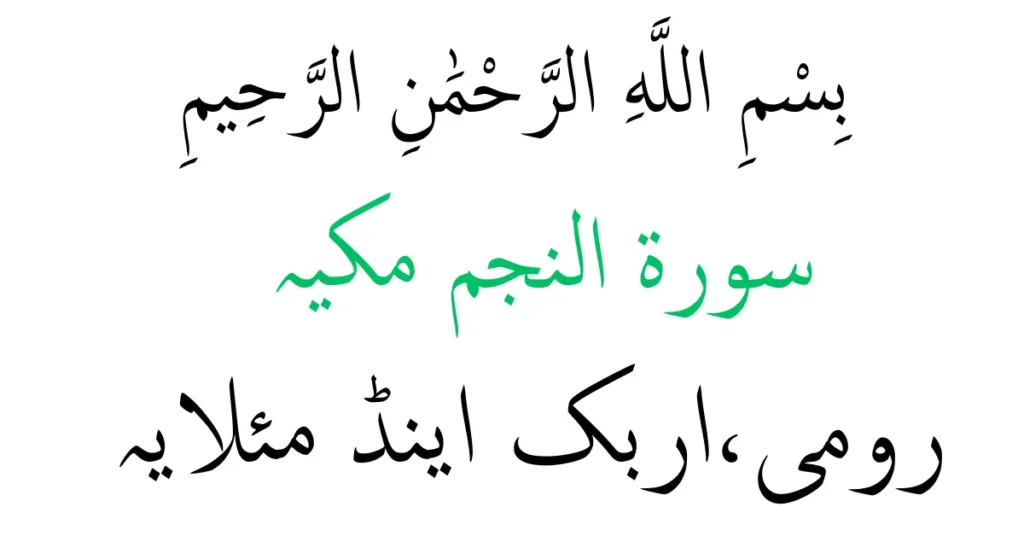 بِسْمِ اللَّهِ الرَّحْمَٰنِ الرَّحِيمِ
سورة النجم مکیہ
رومی،اربک اینڈ مئلایہ